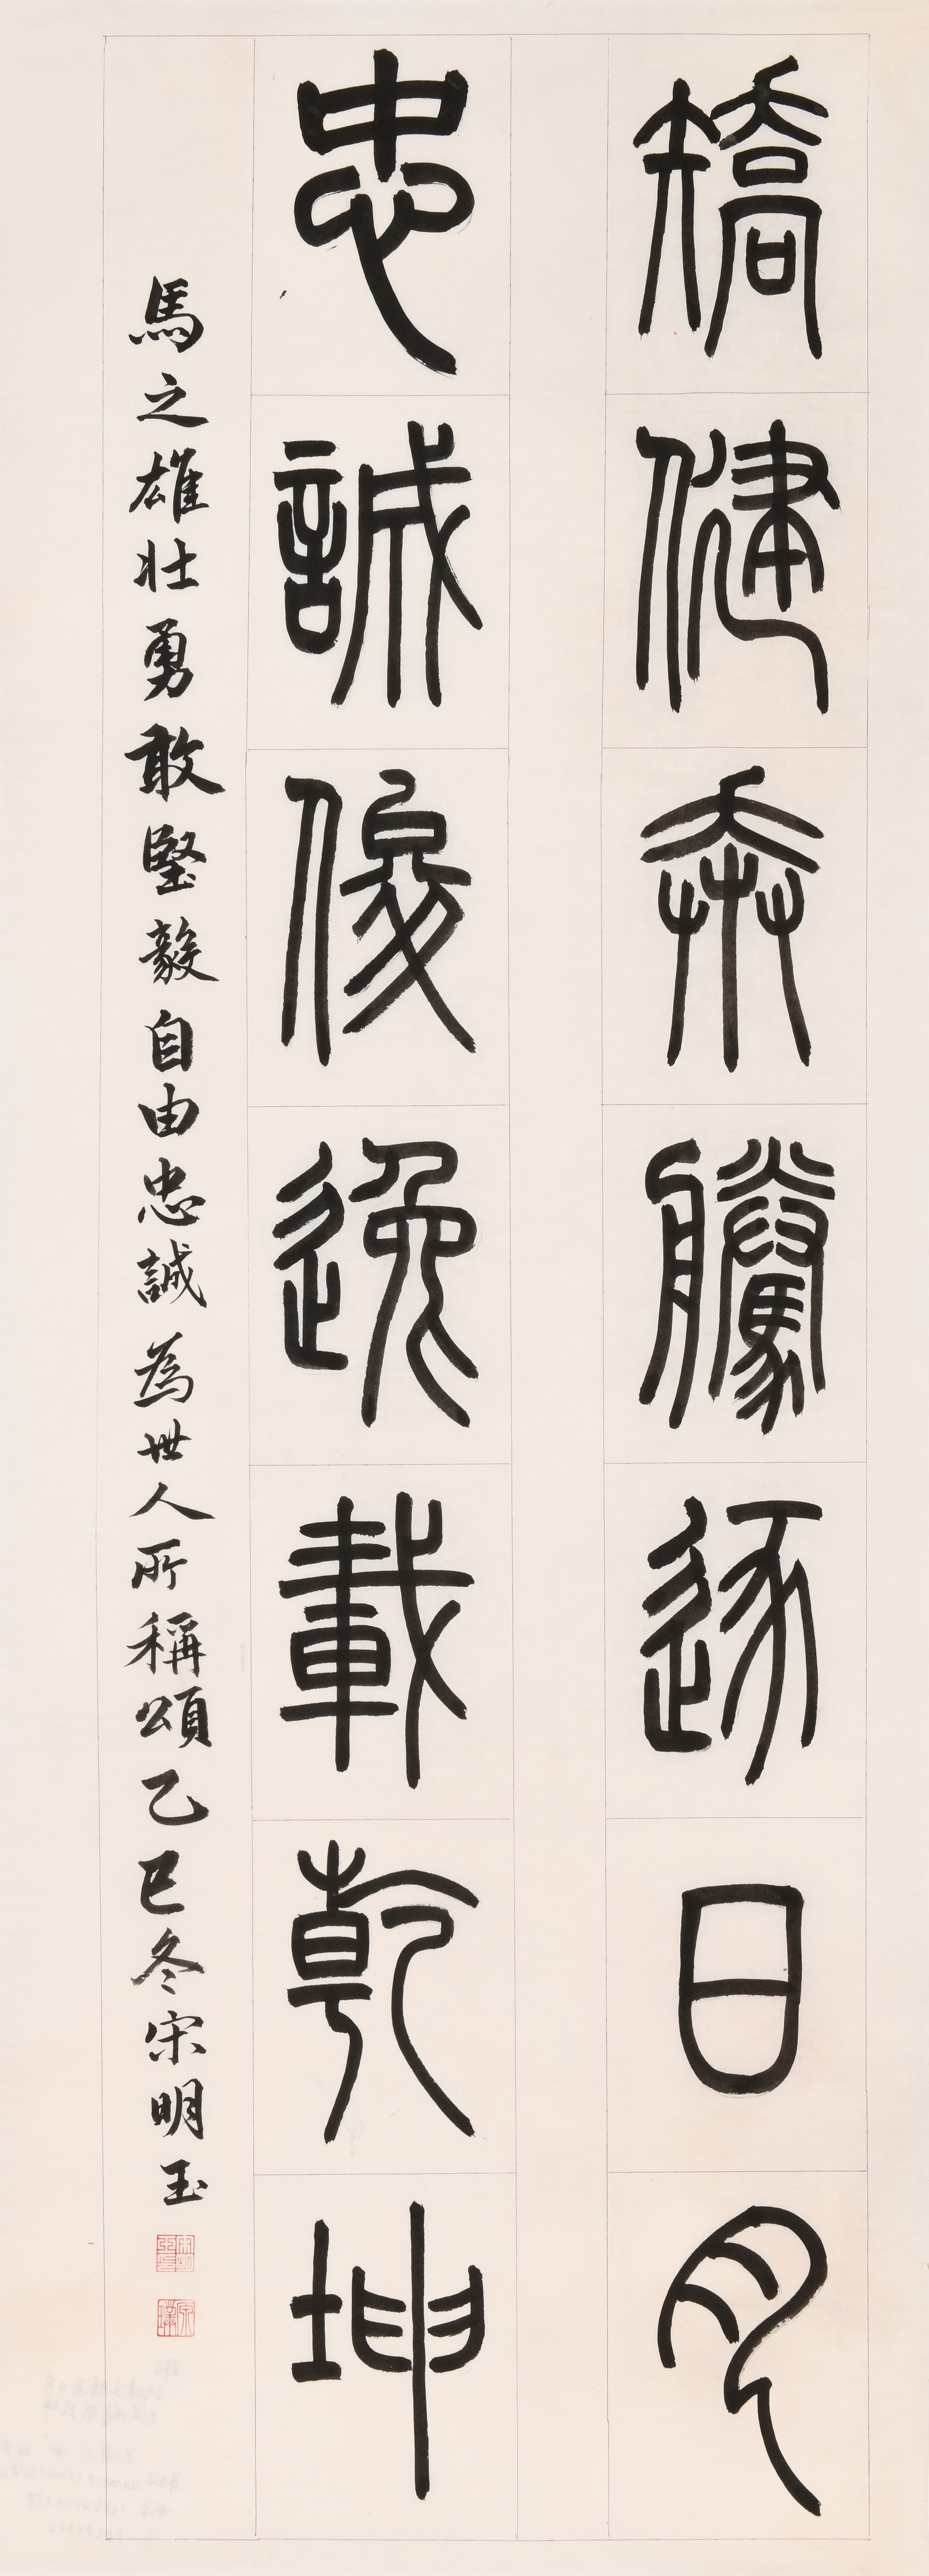 矯健奔騰逐日月
忠誠俊逸載乾坤
馬之雄壯勇敢堅毅自由忠誠為世人所稱頌乙巳冬宋明玉